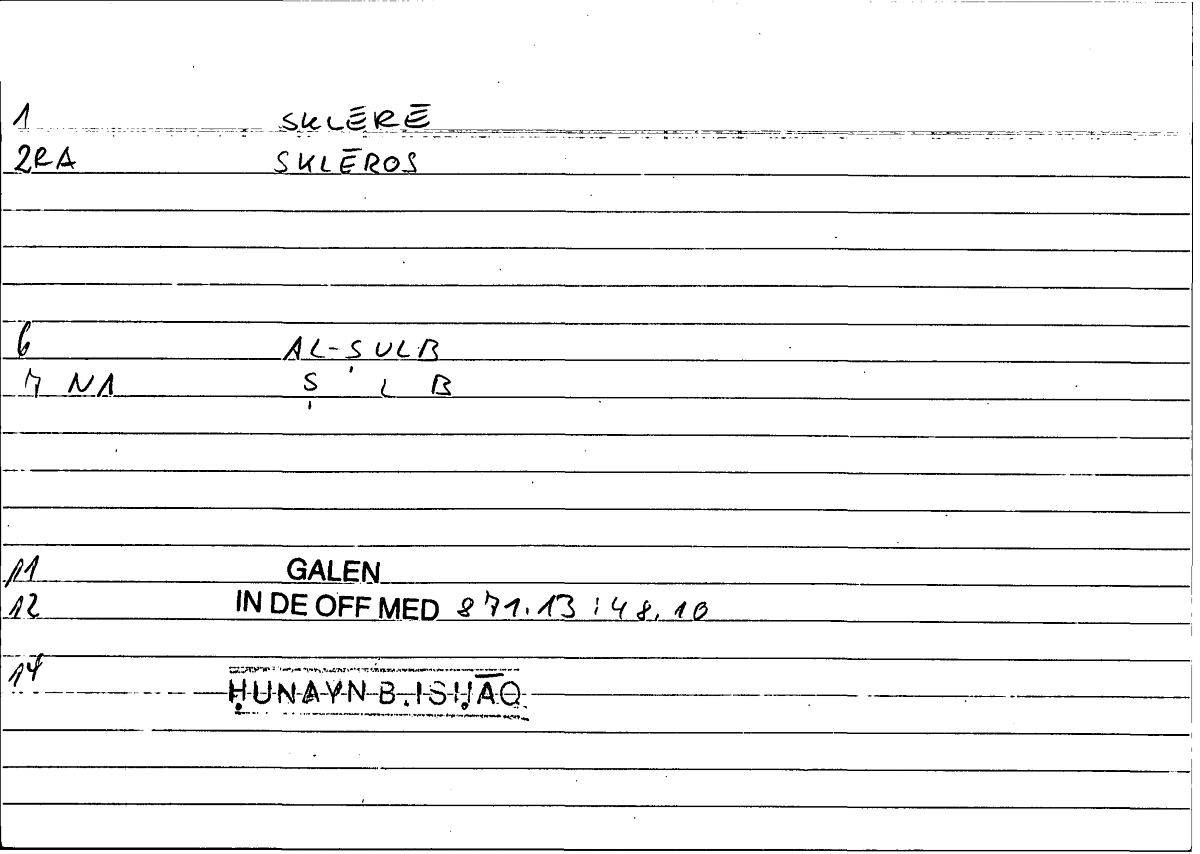 1 SKLĒRĒ
2RA SKLĒROS
6 AL-ṢULB
7 NA Ṣ L B
11 GALEN
12 IN DE OFF MED 871.13 : 48.10
14 ḤUNAYN B. ISḤĀQ